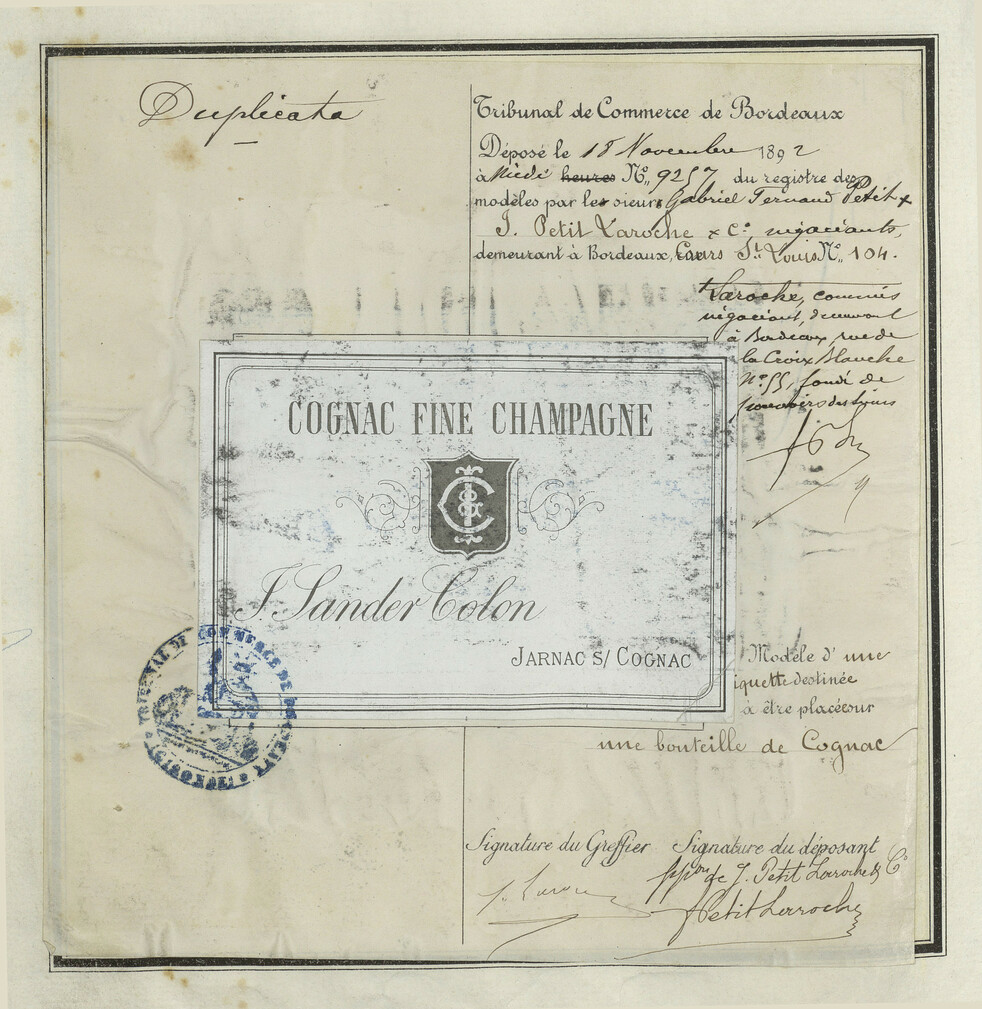 Duplicata
Tribunal de Commerce de Bordeaux
Déposé le 18 Novembre 1892
à Midi heures N°. 9257 du registre des
modèles par le sieur Gabriel Fernand Petit
J. Petit Laroche & Cie négociants,
demeurant à Bordeaux, Cours St. Louis N°. 104.
Laroche, commis
négociant, demeurant
à Bordeaux rue de
la Croix Blanche
N° 55, fondé de
pouvoirs des sieurs
COGNAC FINE CHAMPAGNE
J. Sander Colon
JARNAC S/ COGNAC
TRIBUNAL DE COMMERCE DE BORDEAUX
(GIRONDE)
Modèle d'une
iquette destinée
à être placée sur
une bouteille de Cognac
Signature du Greffier Signature du déposant
ppon de J. Petit Laroche & Cie
Petit Laroche